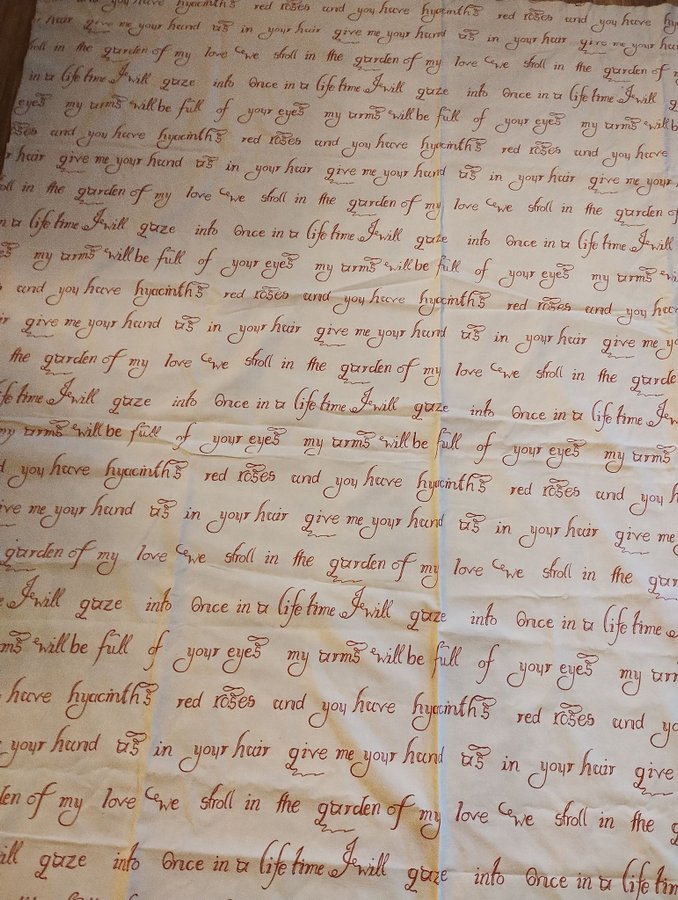 you have hyacinths red roses and you have hyacinths red roses and you have hy
hair give me your hand as in your hair give me your hand as in your hair give me your ha
oll in the garden of my love we stroll in the garden of my love we stroll in the garden of m
in a life time I will gaze into Once in a life time I will gaze into Once in a life time I will g
eyes my arms will be full of your eyes my arms will be full of your eyes my arms will b
oses and you have hyacinths red roses and you have hyacinths red roses and you have
r hair give me your hand as in your hair give me your hand as in your hair give me your
oll in the garden of my love we stroll in the garden of my love we stroll in the garden of
n a life time I will gaze into Once in a life time I will gaze into Once in a life time I will
es my arms will be full of your eyes my arms will be full of your eyes my arms wi
s and you have hyacinths red roses and you have hyacinths red roses and you hav
ir give me your hand as in your hair give me your hand as in your hair give me yo
the garden of my love we stroll in the garden of my love we stroll in the garde
ife time I will gaze into Once in a life time I will gaze into Once in a life time I w
my arms will be full of your eyes my arms will be full of your eyes my arms
d you have hyacinths red roses and you have hyacinths red roses and you h
ive me your hand as in your hair give me your hand as in your hair give me
garden of my love we stroll in the garden of my love we stroll in the gar
e I will gaze into Once in a life time I will gaze into Once in a life time
ms will be full of your eyes my arms will be full of your eyes my arm
have hyacinths red roses and you have hyacinths red roses and yo
your hand as in your hair give me your hand as in your hair give
den of my love we stroll in the garden of my love we stroll in the g
ill gaze into Once in a life time I will gaze into Once in a life tim